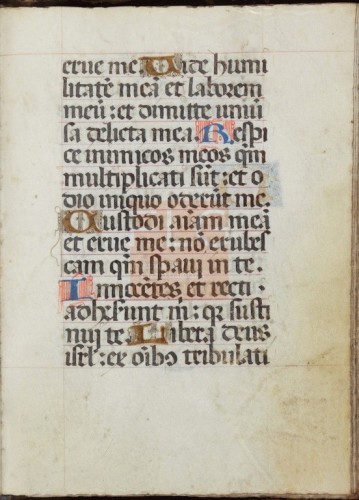 erue me. Vide humi
litatẽ meã et laborem
meũ: et dimitte uniũ
sa delicta mea. Respi
ce inimicos meos qm̃
multiplicati sũt: et o
dio iniquo oderũt me.
Custodi aĩam meã
et erue me: nõ erubes
cam qm̃ speraui in te.
Innocẽtes et recti
adheserunt m̃: qr susti
nui te. Libera deus
isrl̃: ex oĩbꝰ tribulati